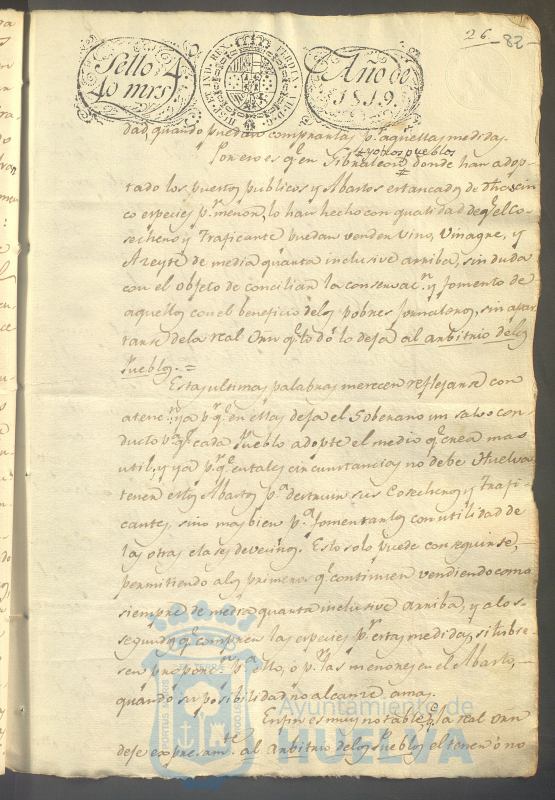 26 82
Sello 4º
40 mrs
HISP. ET IND. REX
FERDIN. VII. D. G.
Año de
1819.
dad, quando puedan comprarlas pr aquellas medidas.
Por eso es qe en Gibraleon, # y otros pueblos donde han adop-
tado los puestos publicos y Abastos estancados de dhas cin
co especies pr menor, lo han hecho con qualidad de qe el Co-
sechero y Traficante puedan vender vino, vinagre, y
Azeyte de media quarta inclusive arriba, sin duda
con el objeto de conciliar la conservacn y fomento de
aquellos con el beneficio de los pobres Jornaleros, sin apar
tarse de la real Orn qe todo lo deja al arbitrio de los
Pueblos. =
Estas ultimas palabras merecen reflejarse con
atencn ya pr qe en ellas deja el Soberano un salvo con
ducto pa qe cada Pueblo adopte el medio qe crea mas
util, y ya pr qe en tales circunstancias no debe Huelva
tener estos Abastos pa destruir sus Cosecheros y Trafi
cantes, sino mas bien pa fomentarlos con utilidad de
las otras clases de vecinos. Esto solo puede conseguirse,
permitiendo a los primeros qe continuen vendiendo como
siempre de media quarta inclusive arriba, y a los
segundos qe compren las especies pr estas medidas, si tubie-
sen proporcn pa ello, ó pr las menores en el Abasto,
quando su posibilidad no alcanze a mas.
En fin es muy notable qe la real Orn
deje expresamte al arbitrio de los Pueblos el tener ó no
Ayuntamiento de
HUELVA